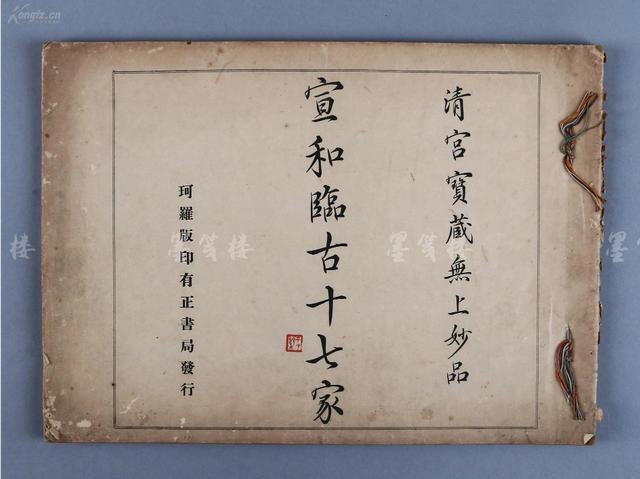 Kongfz.cn
清宮寶蔵無上妙品
宣和臨古十七家
珂羅版印有正書局發行
楼
墨笺楼
墨笺楼
墨笺